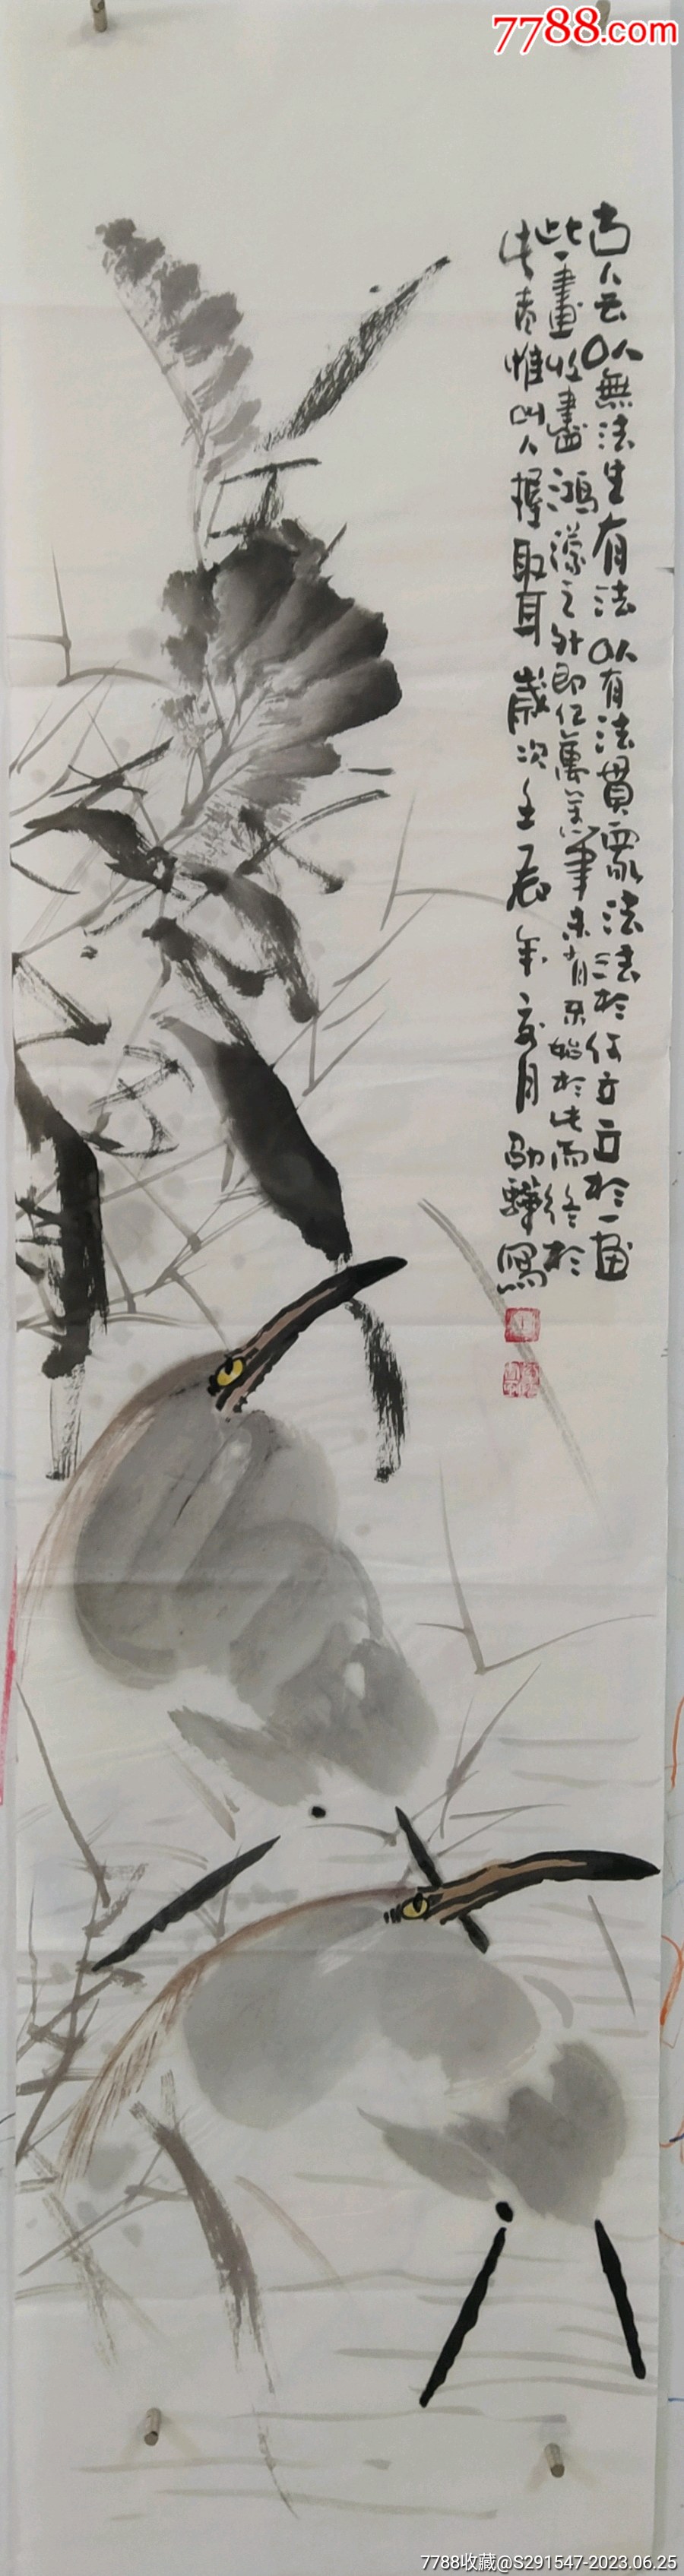 7788.com
古人云以無法生有法以有法貫衆法法於何立立於一畫
此一畫收盡鴻濛之外即亿萬萬筆未有不始於此而終於
此者惟人握取耳歲次壬辰年月劭驊寫
7788收藏@S291547-2023.06.25